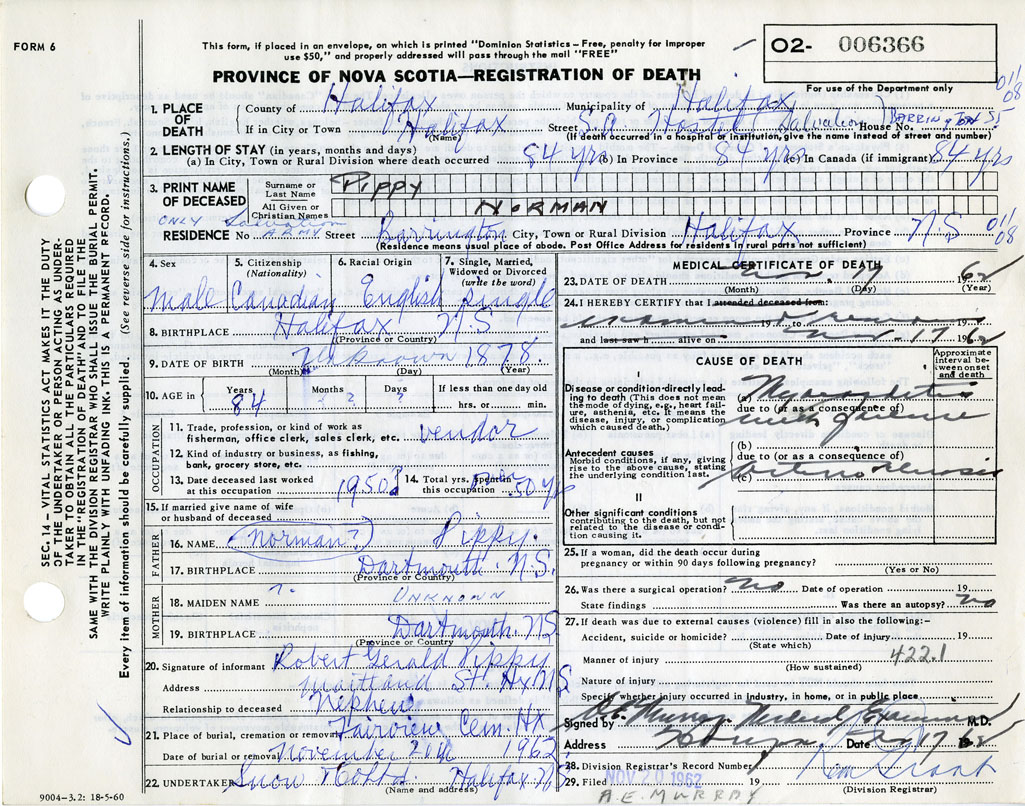 FORM 6
This form, if placed in an envelope, on which is printed "Dominion Statistics – Free, penalty for improper
use $50," and properly addressed will pass through the mail "FREE"
O2- 006366
For use of the Department only
PROVINCE OF NOVA SCOTIA—REGISTRATION OF DEATH
011
08
1. PLACE OF DEATH
County of Halifax Municipality of Halifax
If in City or Town Halifax Street S.A. Hostel (Salvation) House No. BARRINGTON ST
(Name) (If death occurred in a hospital or institution, give the name instead of street and number)
2. LENGTH OF STAY (in years, months and days)
(a) In City, Town or Rural Division where death occurred 84 yrs (b) In Province 84 yrs (c) In Canada (if immigrant) 84 yrs
3. PRINT NAME OF DECEASED
Surname or Last Name PIPPY
All Given or Christian Names NORMAN
ONLY Salvation
RESIDENCE No ARMY Street Barrington City, Town or Rural Division Halifax Province N.S 011
08
(Residence means usual place of abode. Post Office Address for residents in rural parts not sufficient)
4. Sex
5. Citizenship (Nationality)
6. Racial Origin
7. Single, Married, Widowed or Divorced (write the word)
Male Canadian English Single
8. BIRTHPLACE Halifax N.S
(Province or Country)
9. DATE OF BIRTH Unknown 1878.
(Month) (Day) (Year)
10. AGE in
Years Months Days If less than one day old
84 ? ? hrs. or min.
OCCUPATION
11. Trade, profession, or kind of work as
fisherman, office clerk, sales clerk, etc. vendor
12. Kind of industry or business, as fishing,
bank, grocery store, etc.
13. Date deceased last worked
at this occupation 1950?
14. Total yrs. spent in
this occupation 50 yrs
15. If married give name of wife
or husband of deceased
FATHER
16. NAME (Norman?) Pippy.
17. BIRTHPLACE Dartmouth. N.S.
(Province or Country)
MOTHER
18. MAIDEN NAME ?. UNKNOWN
19. BIRTHPLACE Dartmouth. NS
(Province or Country)
20. Signature of informant Robert Gerald Pippy
Address Maitland St. Hx NS
Relationship to deceased Nephew
21. Place of burial, cremation or removal Fairview Cem. Hx
Date of burial or removal November 1962
22. UNDERTAKER Snow Halifax NS
(Name and address)
9004-3.2: 18-5-60
MEDICAL CERTIFICATE OF DEATH
23. DATE OF DEATH Nov 17 1962
(Month) (Day) (Year)
24. I HEREBY CERTIFY that I attended deceased from:
examined 19 to 19
and last saw h alive on Nov 17 1962
CAUSE OF DEATH
Approximate interval between onset and death
I
Disease or condition directly leading to death (This does not mean
the mode of dying, e.g., heart failure, asthenia, etc. It means the
disease, injury, or complication
which caused death.)
(a) Myocarditis
due to (or as a consequence of)
(b)
Antecedent causes
Morbid conditions, if any, giving
rise to the above cause, stating
the underlying condition last.
due to (or as a consequence of)
(c)
II
Other significant conditions
contributing to the death, but not
related to the disease or condition
causing it.
25. If a woman, did the death occur during
pregnancy or within 90 days following pregnancy?
(Yes or No)
26. Was there a surgical operation? no Date of operation 19
State findings Was there an autopsy? no
27. If death was due to external causes (violence) fill in also the following:-
Accident, suicide or homicide? Date of injury 19
(State which)
Manner of injury 422.1
(How sustained)
Nature of injury
Specify whether injury occurred in industry, in home, or in public place
Signed by A.E. Murray Medical Examiner M.D.
Address Date 17 62
28. Division Registrar's Record Number
29. Filed NOV 20 1962 19
(Division Registrar)
A.E. MURRAY
SEC. 14 – VITAL STATISTICS ACT MAKES IT THE DUTY
OF THE UNDERTAKER OR PERSON ACTING AS UNDERTAKER
TO OBTAIN ALL THE PARTICULARS REQUIRED
IN THE "REGISTRATION OF DEATH" AND TO FILE THE
SAME WITH THE DIVISION REGISTRAR WHO SHALL ISSUE THE BURIAL PERMIT.
WRITE PLAINLY WITH UNFADING INK. THIS IS A PERMANENT RECORD.
Every item of information should be carefully supplied. (See reverse side for instructions.)